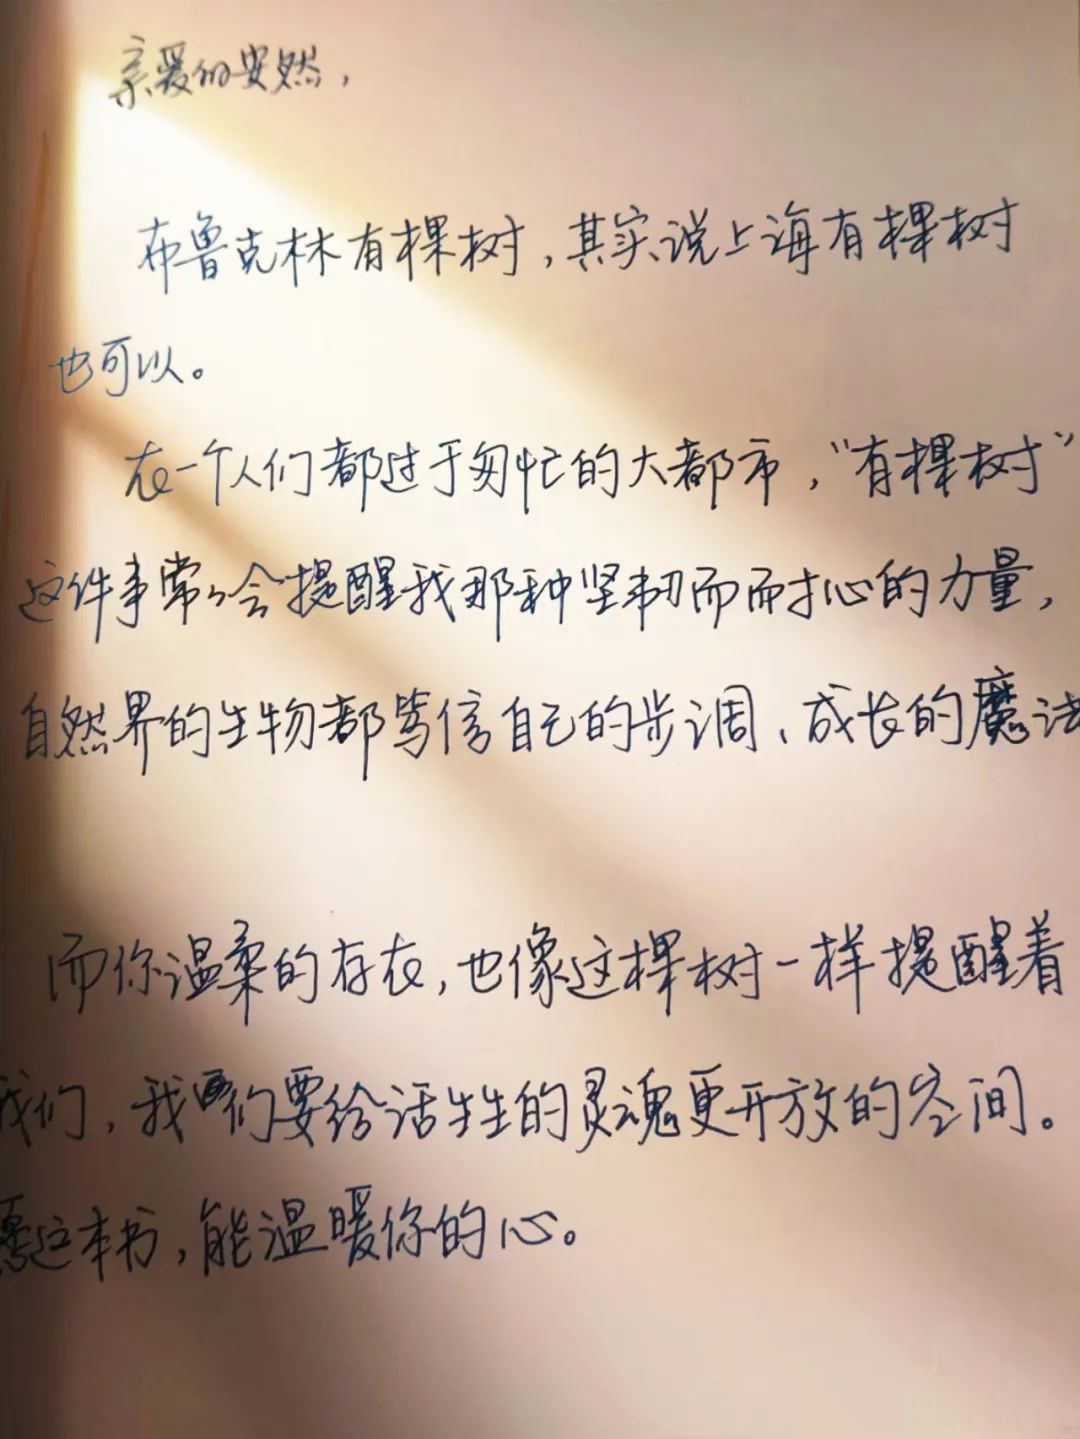 亲爱的安然，
布鲁克林有棵树，其实说上海有棵树
也可以。
在一个人们都过于匆忙的大都市，“有棵树”
这件事常々会提醒我那种坚韧而耐心的力量，
自然界的生物都笃信自己的步调、成长的魔法
而你温柔的存在，也像这棵树一样提醒着
我们，我们要给活生生的灵魂更开放的空间。
愿这本书，能温暖你的心。